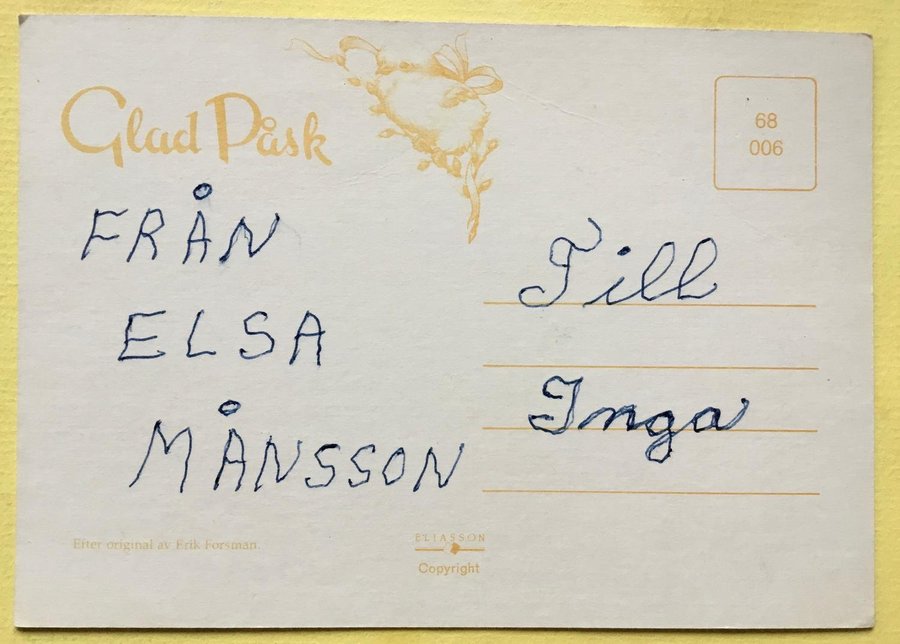 Glad Påsk
68
006
FRÅN
ELSA
MÅNSSON
Till
Inga
Efter original av Erik Forsman.
ELIASSON
Copyright